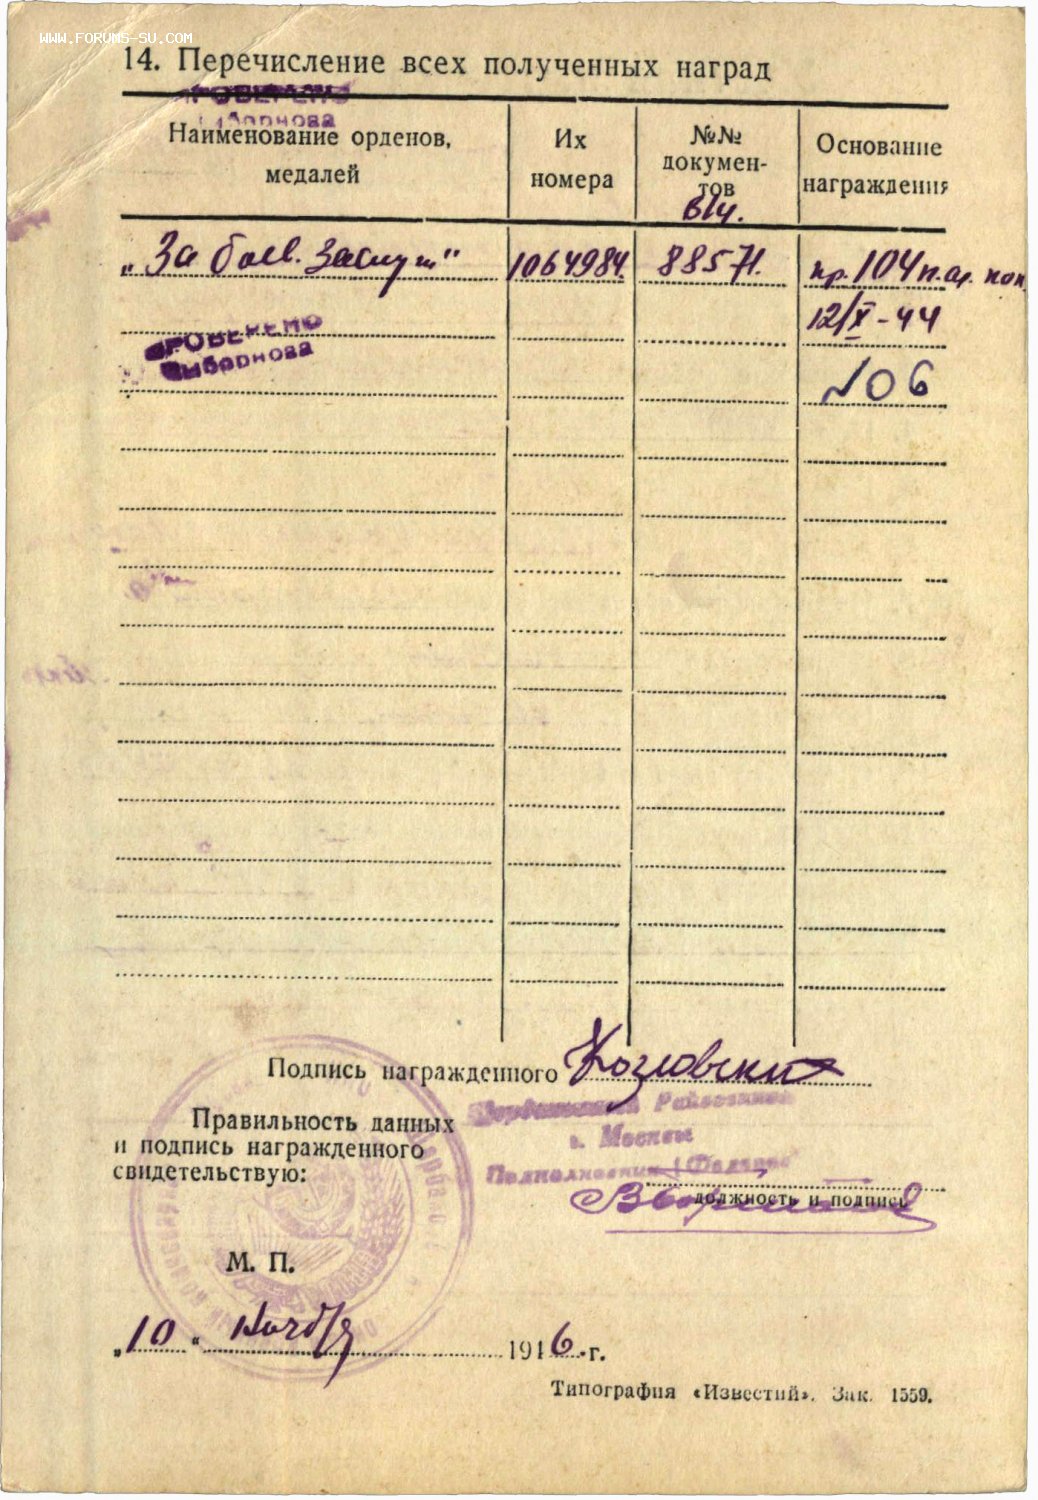 WWW.FORUMS-SU.COM
14. Перечисление всех полученных наград
ПРОВЕРЕНО
Наименование орденов, медалей
Их номера
№№ документов
Основание награждения
в/ч.
„За боев. заслуги"
1064984.
88571.
пр. 104 п.ар. пол
12/X-44
ПРОВЕРЕНО
Выборнова
№ 06
Подпись награжденного Козловский
Правильность данных
и подпись награжденного
свидетельствую:
Райвоенком
г. Москвы
Подполковник
должность и подпись
М. П.
„10“ Ноября 1946 г.
Типография «Известий». Зак. 1559.